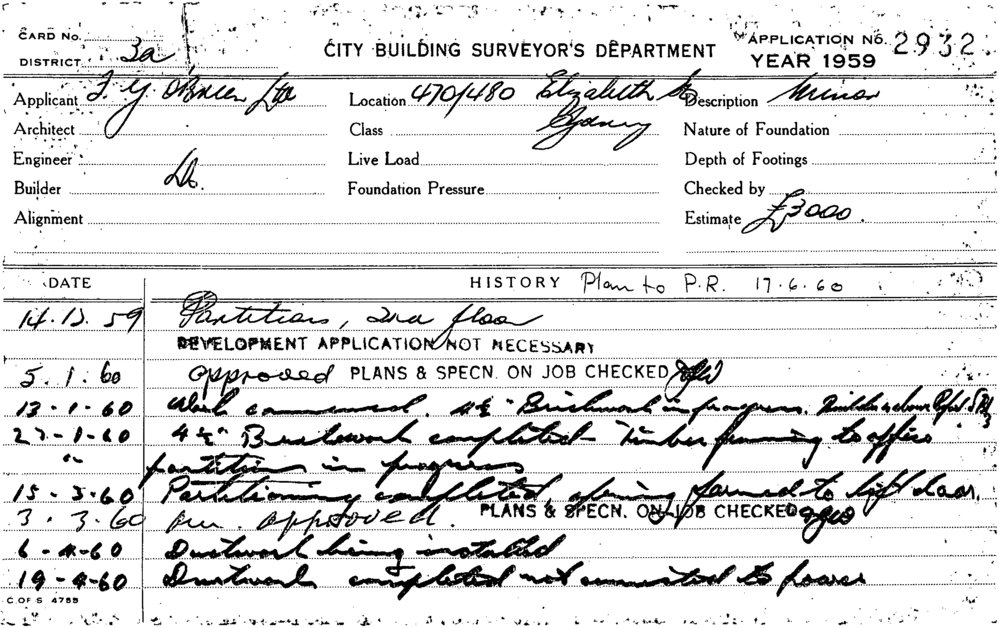 CARD No.
DISTRICT 3a
CITY BUILDING SURVEYOR'S DEPARTMENT
APPLICATION No. 2932
YEAR 1959
Applicant J. Y. O'Brien Ltd
Location 470/480 Elizabeth St
Description Minor
Architect
Class Sydney
Nature of Foundation
Engineer
Live Load
Depth of Footings
Builder Do.
Foundation Pressure
Checked by
Alignment
Estimate £3000.
DATE
HISTORY Plan to P.R. 17.6.60
14.12.59 Partitions, 2nd floor
DEVELOPMENT APPLICATION NOT NECESSARY
5.1.60 approved PLANS & SPECN. ON JOB CHECKED
13-1-60 Work commenced. 4½" Brickwork in progress. Builder as above
27-1-60 4½" Brickwork completed - Timber framing to office
" partitions in progress
15-3-60 Partitioning completed, opening formed to lift door.
3.3.60 approved. PLANS & SPECN. ON JOB CHECKED
6-4-60 Ductwork being installed
19-4-60 Ductwork completed not connected to power
C OF S 4755